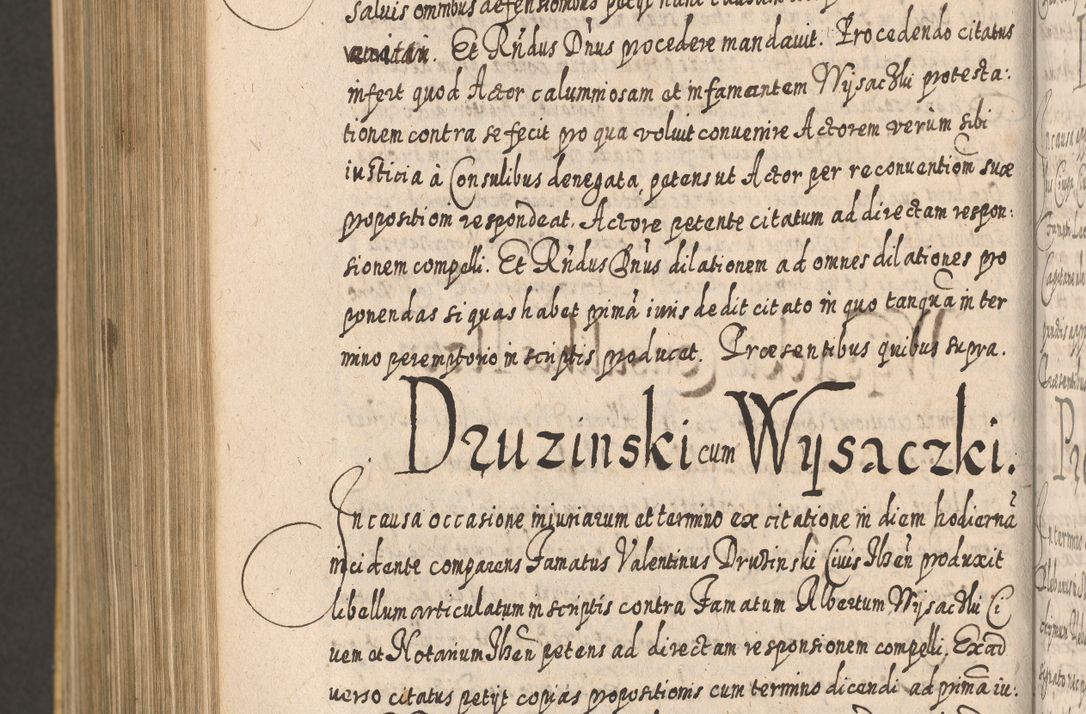 Saluis omnibus defensionibus petijt
veritati. Et Rńdus Dńus procedere mandauit. Procedendo citatus
infert quod Actor calumniosam et infamantem Wysaczki protesta:
tionem contra se fecit pro qua voluit conuenire Actorem verum sibi
iusticia à Consulibus denegata, petens ut Actor per reconuentiom̃ suæ
propositiom respondeat. Actore petente citatum ad directam respon:
sionem compelli. Et Rńdus Dńus dilationem ad omnes dilationes pro
ponendas si quas habet primã iuris dedit citato in quo tanquã in ter
mino peremptorio in scriptis producet. Præsentibus quibus supra.
Druzinski cum Wysaczki.
In causa occasione iniuriarum et termino ex citatione in diem hodiernã
incidente comparens Famatus Valentinus Druzinski Ciuis Ilzeñ produxit
libellum articulatum in scriptis contra Famatum Albertum Wysaczki Ci
uem et Notarium Ilzeñ petens ad directam responsionem compelli. Exad
uerso citatus petijt copias propositionis cum termino dicendi ad primã iu: